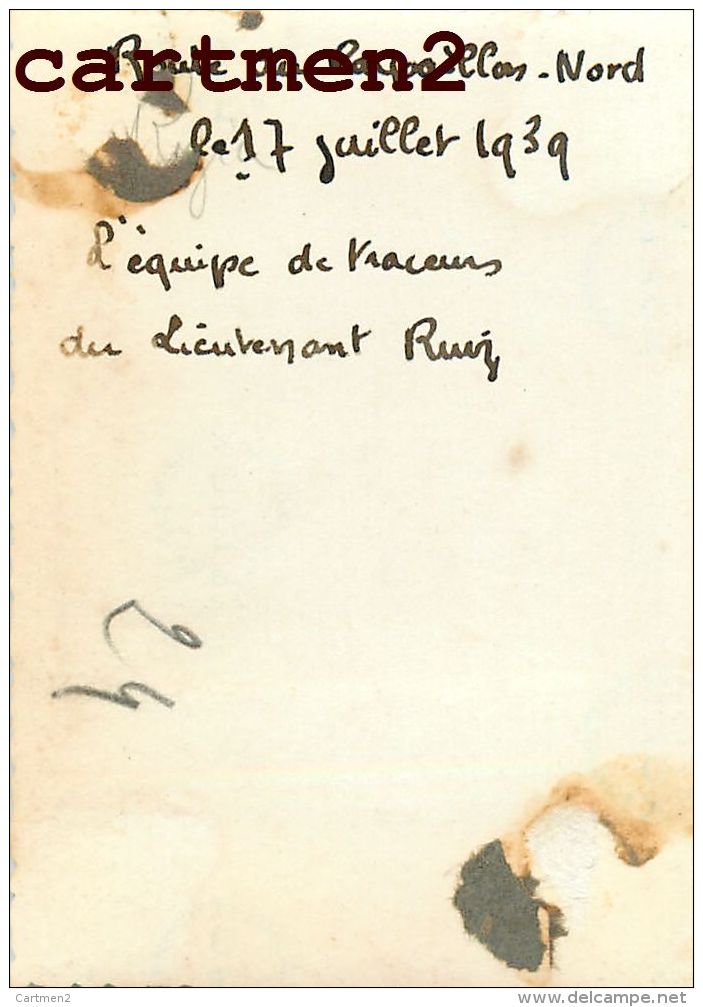 cartmen2
Route du Capoillas - Nord
le 17 juillet 1939
L'équipe de traceurs
du Lieutenant Ruiz
Cartmen2
www.delcampe.net